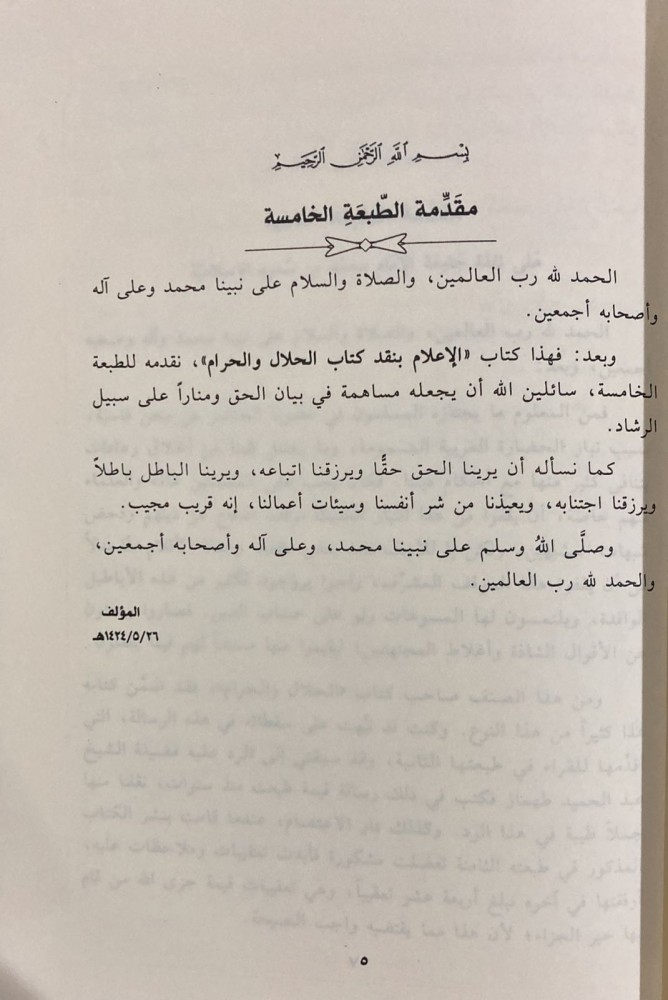 بسم الله الرحمن الرحيم
مقَدِّمة الطّبعَةِ الخامسة
الحمد لله رب العالمين، والصلاة والسلام على نبينا محمد وعلى آله
وأصحابه أجمعين.
وبعد: فهذا كتاب «الإعلام بنقد كتاب الحلال والحرام»، نقدمه للطبعة
الخامسة، سائلين الله أن يجعله مساهمة في بيان الحق ومناراً على سبيل
الرشاد.
كما نسأله أن يرينا الحق حقًّا ويرزقنا اتباعه، ويرينا الباطل باطلاً
ويرزقنا اجتنابه، ويعيذنا من شر أنفسنا وسيئات أعمالنا، إنه قريب مجيب.
وصلَّى اللهُ وسلم على نبينا محمد، وعلى آله وأصحابه أجمعين،
والحمد لله رب العالمين.
المؤلف
١٤٢٤/٥/٢٦هـ
٥